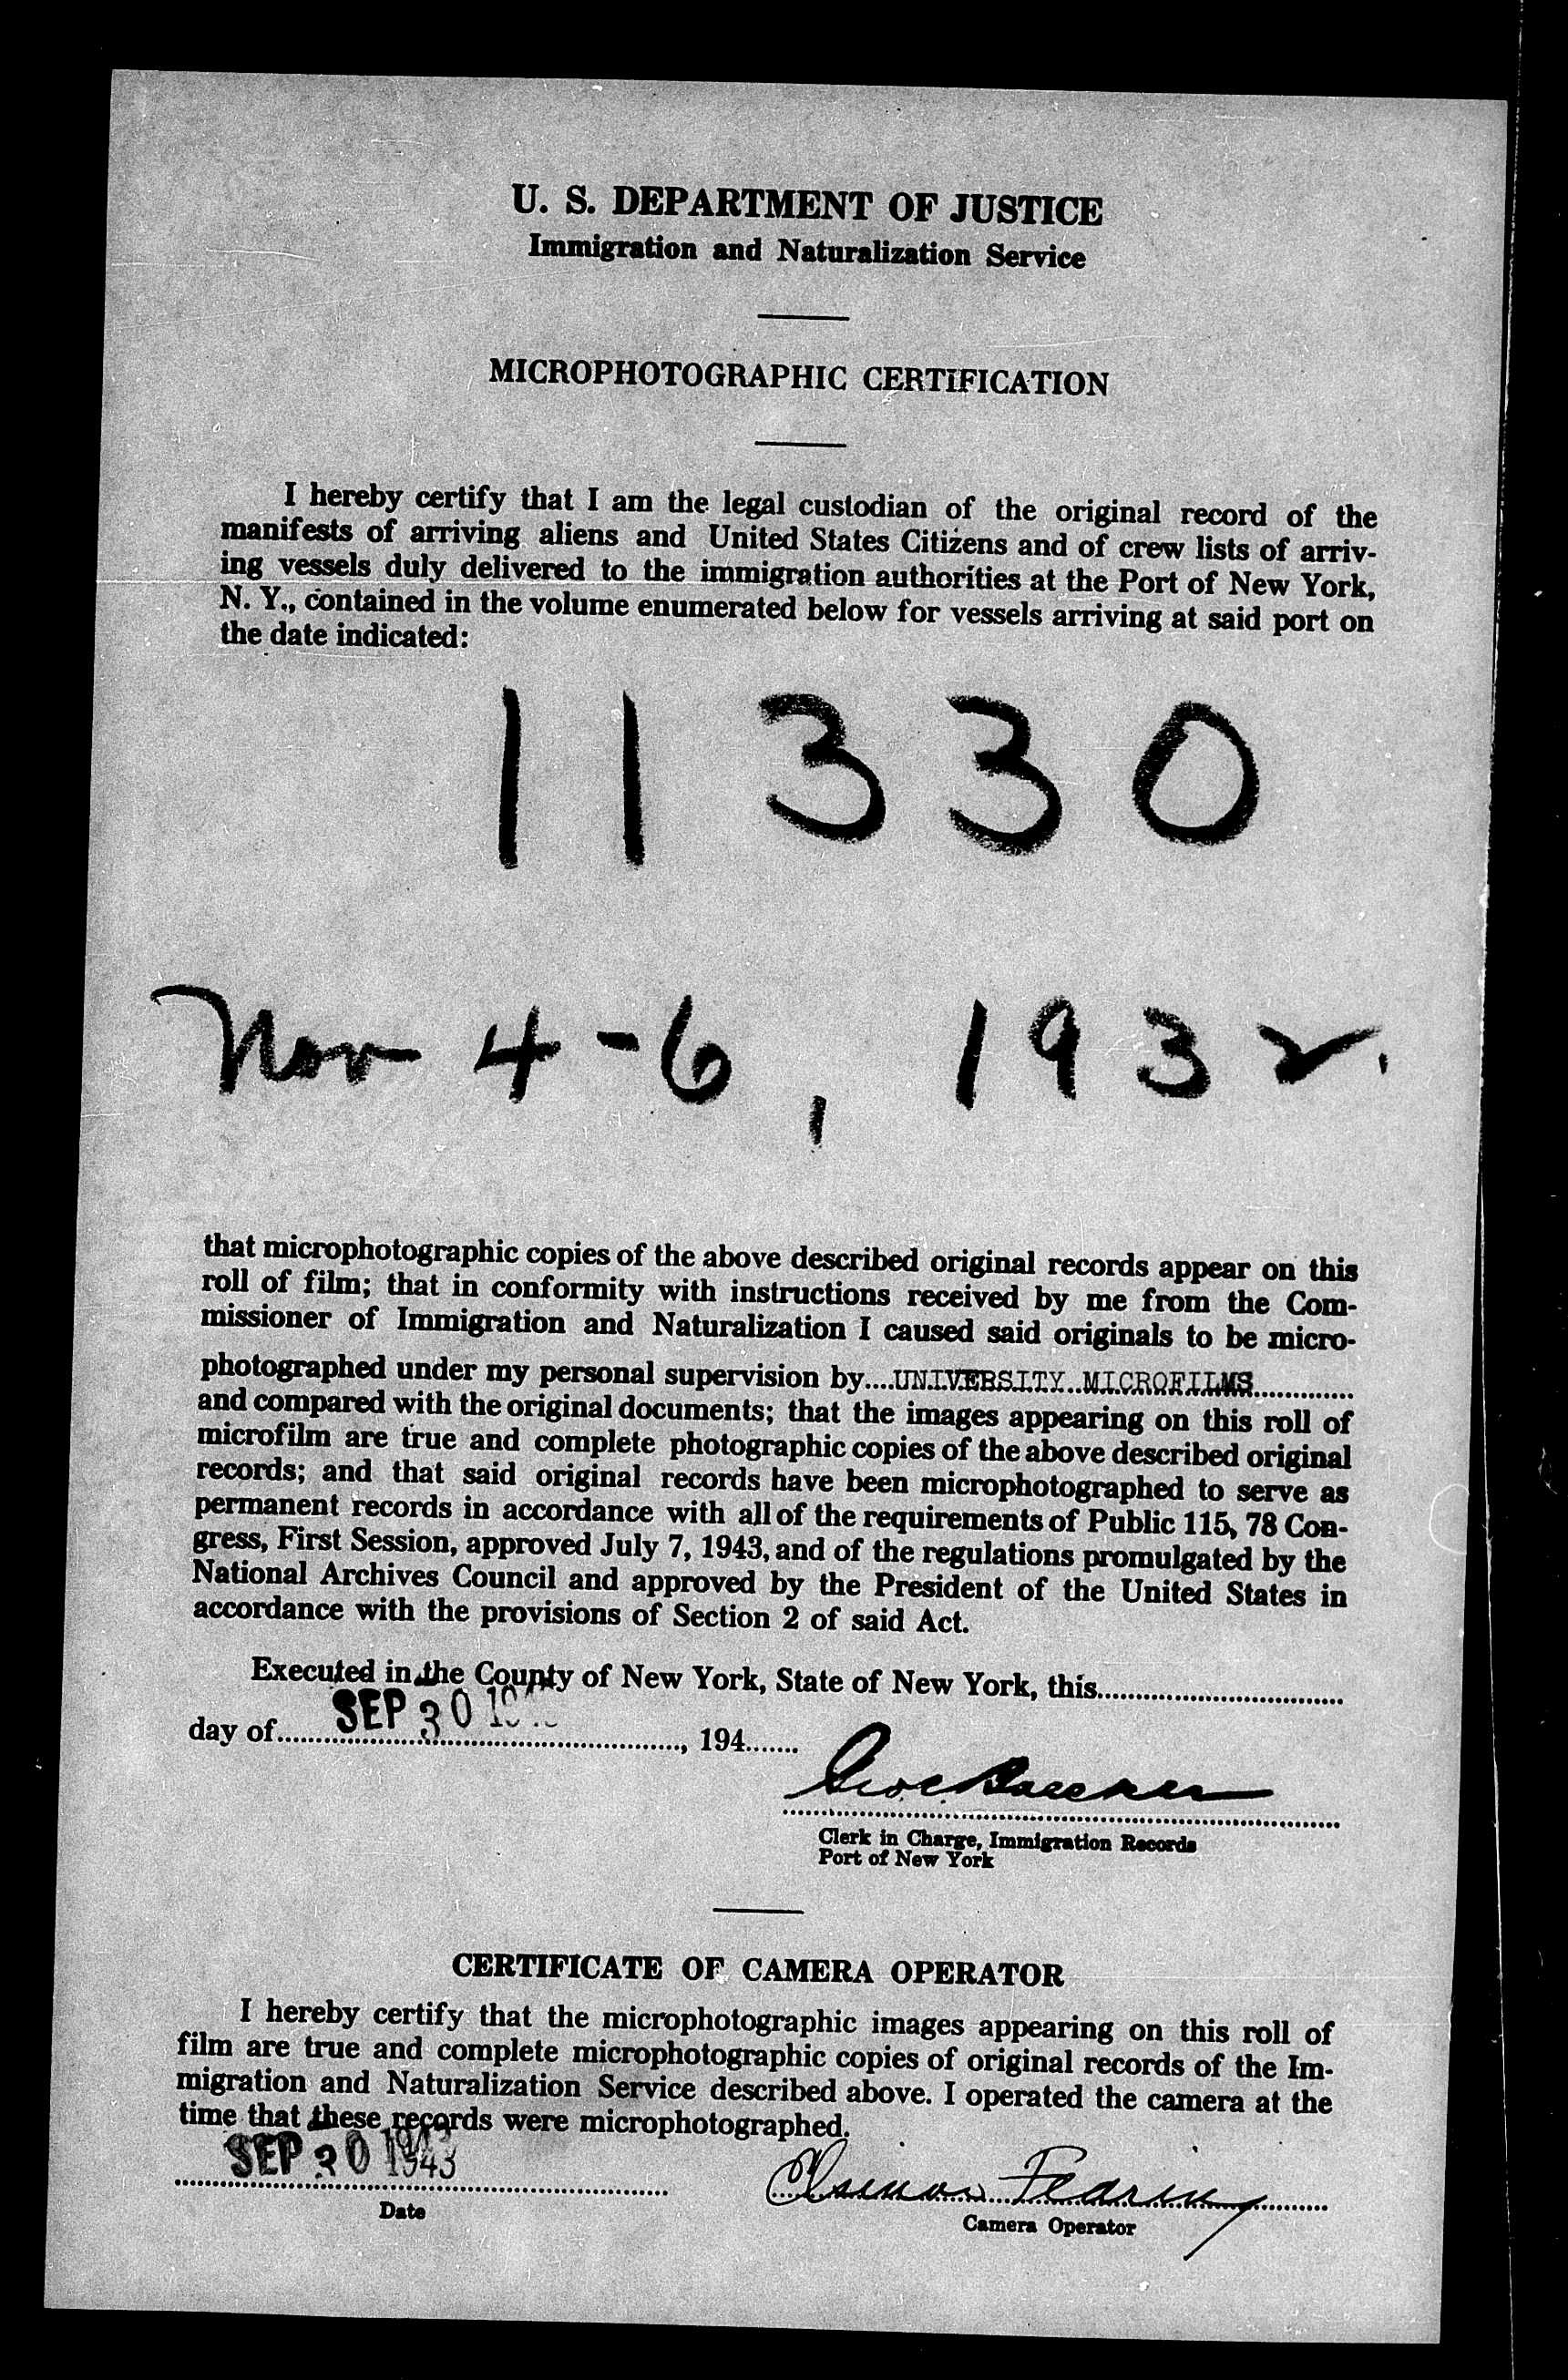 U. S. DEPARTMENT OF JUSTICE
Immigration and Naturalization Service
MICROPHOTOGRAPHIC CERTIFICATION
I hereby certify that I am the legal custodian of the original record of the
manifests of arriving aliens and United States Citizens and of crew lists of arriv-
ing vessels duly delivered to the immigration authorities at the Port of New York,
N. Y., contained in the volume enumerated below for vessels arriving at said port on
the date indicated:
11330
Nov 4-6, 1932.
that microphotographic copies of the above described original records appear on this
roll of film; that in conformity with instructions received by me from the Com-
missioner of Immigration and Naturalization I caused said originals to be micro-
photographed under my personal supervision by....UNIVERSITY MICROFILMS.............
and compared with the original documents; that the images appearing on this roll of
microfilm are true and complete photographic copies of the above described original
records; and that said original records have been microphotographed to serve as
permanent records in accordance with all of the requirements of Public 115, 78 Con-
gress, First Session, approved July 7, 1943, and of the regulations promulgated by the
National Archives Council and approved by the President of the United States in
accordance with the provisions of Section 2 of said Act.
Executed in the County of New York, State of New York, this................................
day of......SEP 30......, 194.......
Clerk in Charge, Immigration Records
Port of New York
CERTIFICATE OF CAMERA OPERATOR
I hereby certify that the microphotographic images appearing on this roll of
film are true and complete microphotographic copies of original records of the Im-
migration and Naturalization Service described above. I operated the camera at the
time that these records were microphotographed.
SEP 30 1943
Date
Camera Operator